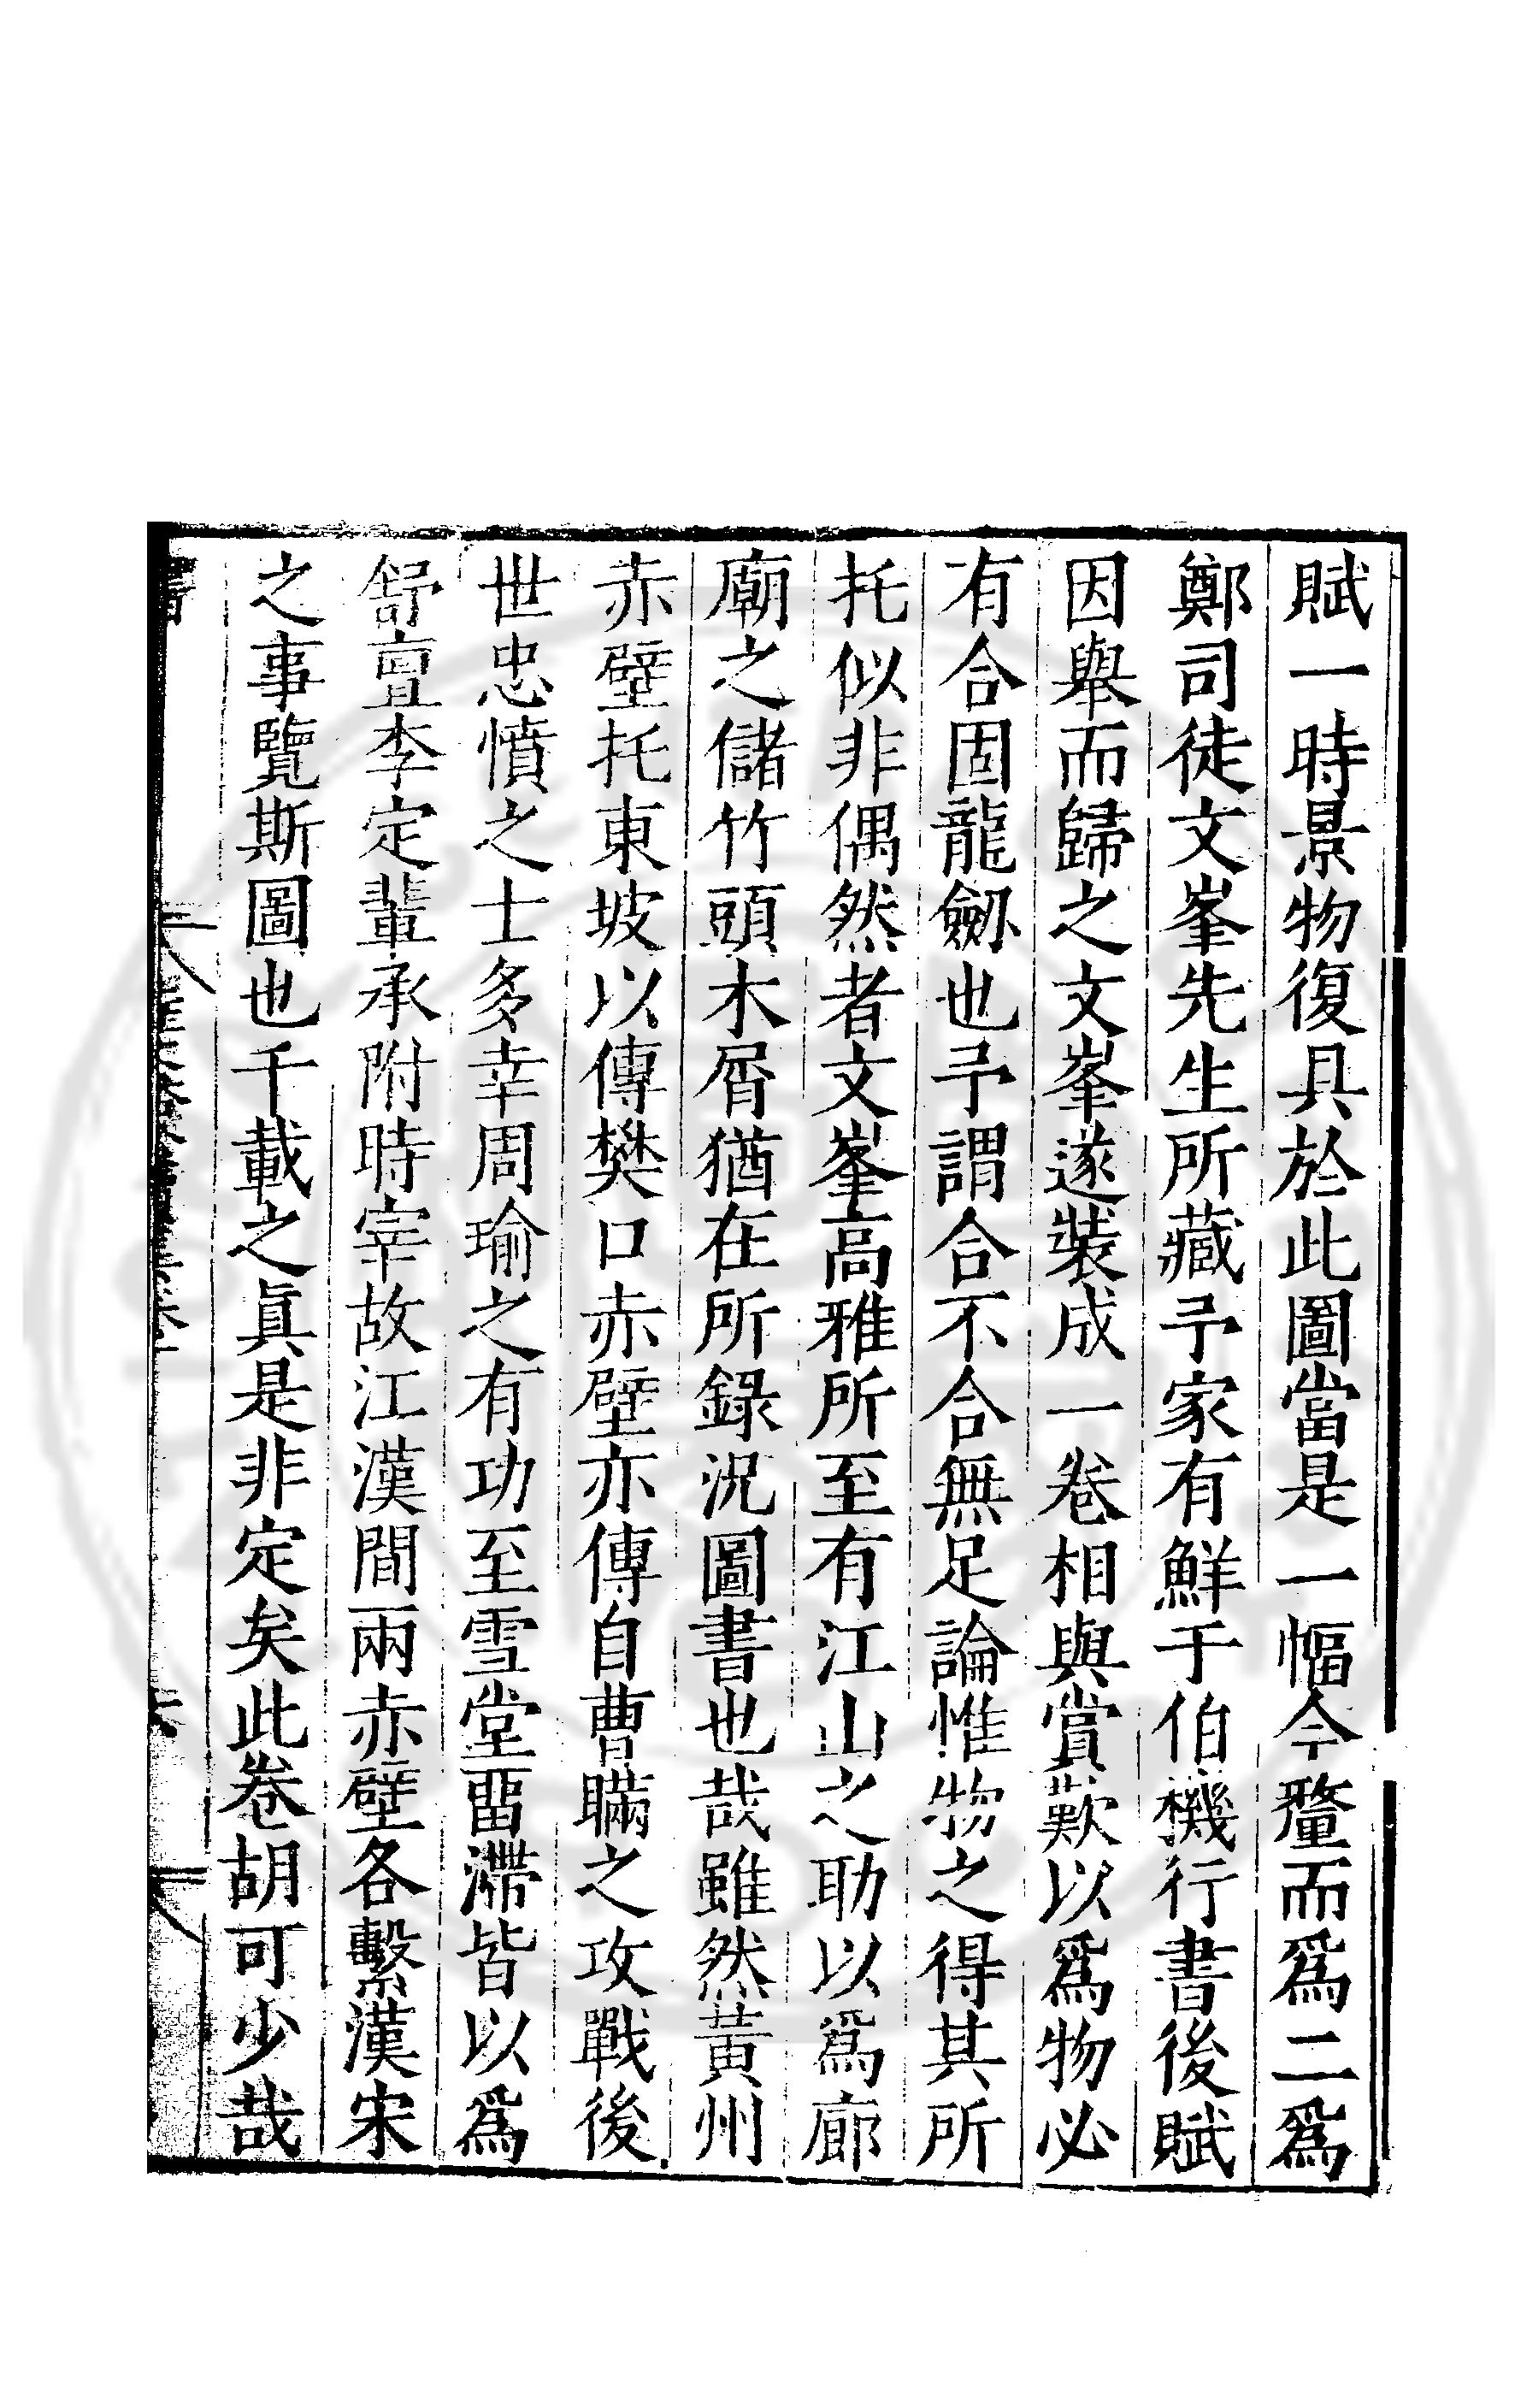 賦一時景物復具於此圖當是一幅今釐而爲二爲
鄭司徒文峯先生所藏予家有鮮于伯機行書後賦
因舉而歸之文峯遂裝成一卷相與賞歎以爲物必
有合固龍劒也予謂合不合無足論惟物之得其所
托似非偶然者文峯高雅所至有江山之助以爲廊
廟之儲竹頭木屑猶在所錄況圖書也哉雖然黃州
赤壁托東坡以傳樊口赤壁亦傳自曹瞞之攻戰後
世忠憤之士多幸周瑜之有功至雪堂畱滯皆以爲
舒亶李定輩承附時宰故江漢間兩赤壁各繫漢宋
之事覽斯圖也千載之眞是非定矣此卷胡可少哉